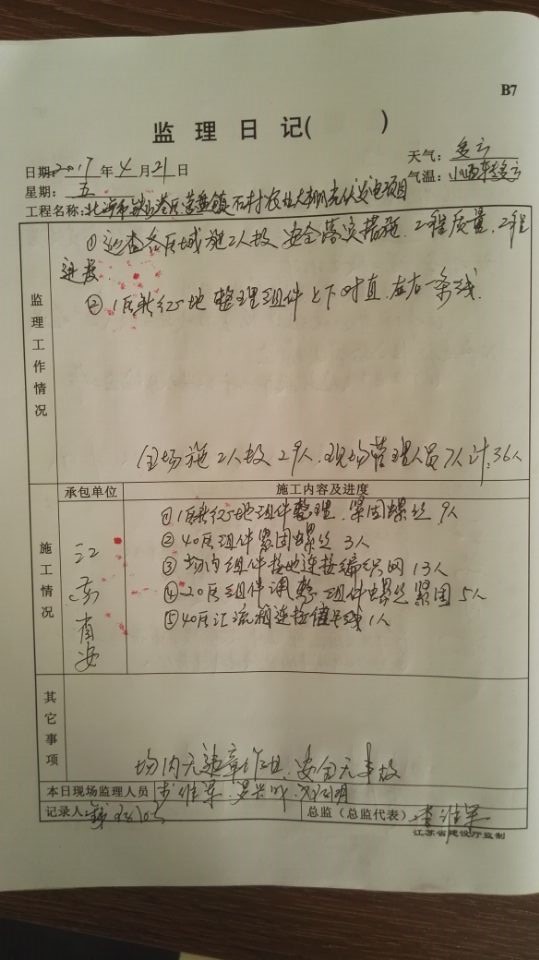 B7
监理日记(          )
日期:2017年4月21日
天气:多云
星期:五
气温:小雨转多云
工程名称:北海市铁山港区营盘镇石村农业大棚光伏发电项目
监理工作情况
①巡查各区域施工人员 安全落实措施 工程质量、工程
进度
②1区新红25地整理组件上下对直 左右一条线
全场施工人员29人、现场管理人员7人计:36人
施工情况
承包单位
施工内容及进度
江苏有安
①1区新红25地组件整理、紧固螺丝9人
②40区组件紧固螺丝3人
③场内组件接地连接编织网13人
④20区组件调整、组件螺丝紧固5人
⑤40区汇流箱连接信号线1人
其它事项
场内无违章作业、安全无事故
本日现场监理人员
记录人
总监(总监代表)李维军
江苏省建设厅监制